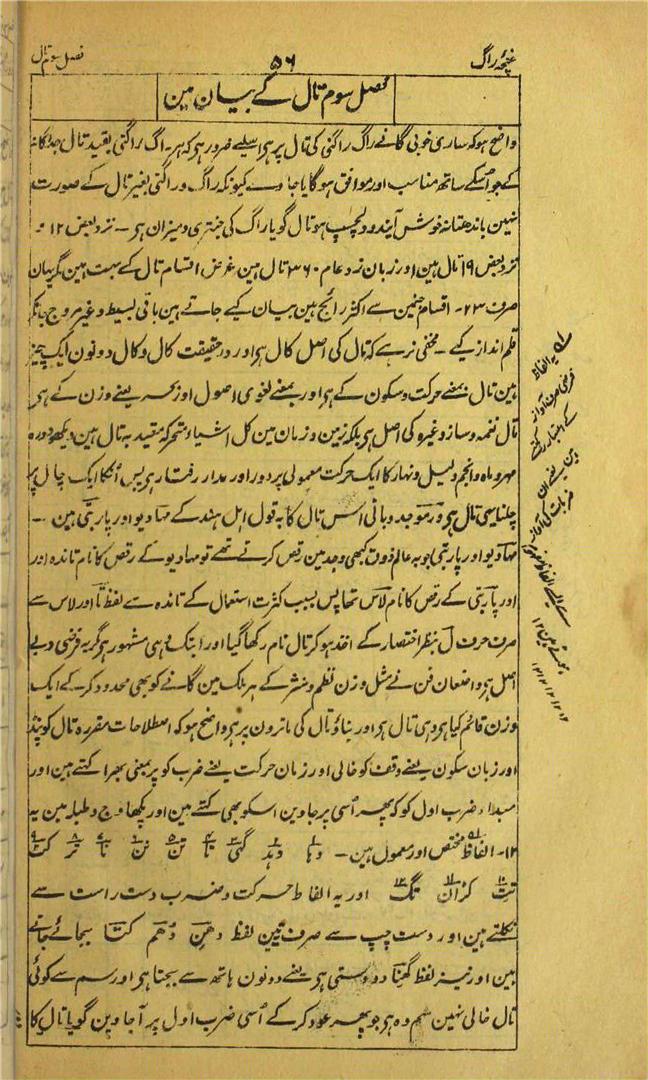 غنچۂ راگ ۵۶ فصل سوم تال
فصل سوم تال کے بیان مین
واضح ہو کہ ساری خوبی گانے راگ راگنی کی تال پر ہی اسلیے ضرور ہی کہ ہر اک راگنی بقید تال جداگانہ
کے جو اسکے ساتھ مناسب اور موافق ہو گایا جاوے کیونکہ راگ و راگنی بغیر تال کے صورت
نہین باندھتا نہ خوش آیند و دلچسپ ہو تال گویا راگ کی جنتری و میزان ہی ۔ نزد بعض ۱۲ و
نزد بعض ۱۹ تال ہین اور زبان زد عام ۳۶۰ تال ہین غرض اقسام تال کے بہت ہین گر یہان
صرف ۲۳ ۔ اقسام جنمین سے اکثر رائج ہین بیان کیے جاتے ہین باقی بسیط و غیر مروج جانکر
قلم انداز کیے ۔ مخفی نرہے کہ تال کی اصل کال ہی اور درحقیقت کال و کال دونون ایک چیز
ہین تال بمعنے حرکت و سکون کے ہی اور بمعنے لغوی اصول اور بحر یعنے وزن کے ہی
تال نغمہ و ساز وغیرہ کی اصل ہی بلکہ زمین و زمان مین کل اشیاء متحرکہ مقید بہ تال ہین دیکھو دورہ
مہر و ماہ و انجم و لیل و نہار کا ایک حرکت معمولی پر دور اور مدار رفتار ہی پس اُنکا ایک چال پر
چلنا یہی تال ہی و موجد و بانی اس تال کا بہ قول اہل ہند کے مہادیو اور پاربتی ہین ۔
مہادیو اور پاربتی جو بہ عالم ذوق کبھی وجد مین رقص کرتے تھے تو مہادیو کے رقص کا نام تانڈہ اور
اور پاربتی کے رقص کا نام لاس تھا پس بسبب کثرت استعمال کے تانڈہ سے لفظ تا اور لاس سے
صرف حرف ل بنظر اختصار کے اخذ ہو کر تال نام رکھا گیا اور ابتک وہی مشہور ہی گر یہ فرضی و بے
اصل ہی واضعان فن نے مثل وزن نظم و نثر کے ہر بنک مین گانے کو بھی محدود کر کے ایک
وزن قائم کیا ہی وہی تال ہی اور بناؤ تال کی ماترون پر ہی واضح ہو کہ اصطلاحات مقررہ تال کو
اور زبان سکون یعنے وقف کو خالی اور زمان حرکت یعنے ضرب کو پر بمعنی بھرا کہتے ہین اور
مبداء و ضرب اول کو کہ پھر اُسی پر جاوین اسکو بھی کہتے ہین اور پکھاوج و طبلہ مین یہ
۱۲ ۔ الفاظ مختص اور معمول ہین ۔ دہا دہد گی تا تن نن تا تر کٹ
تت کران تگ اور یہ الفاظ حرکت و ضرب دست راست سے
نکلتے ہین اور دست چپ سے صرف تین لفظ دھن دھم کتا بجائے جاتے
ہین اور نیز لفظ گھنا دو دستی ہی یعنے دونون ہاتھ سے بجتا ہی اور سم سے کوئی
تال خالی نہین سم وہ ہی جو پھر عود کر کے اُسی ضرب اول پر آ جاوین گویا تال کا
یہ الفاظ
فرضی صرف آواز
کے اعتبار رکھتے
ہین یعنے ان
ضربات کی آواز